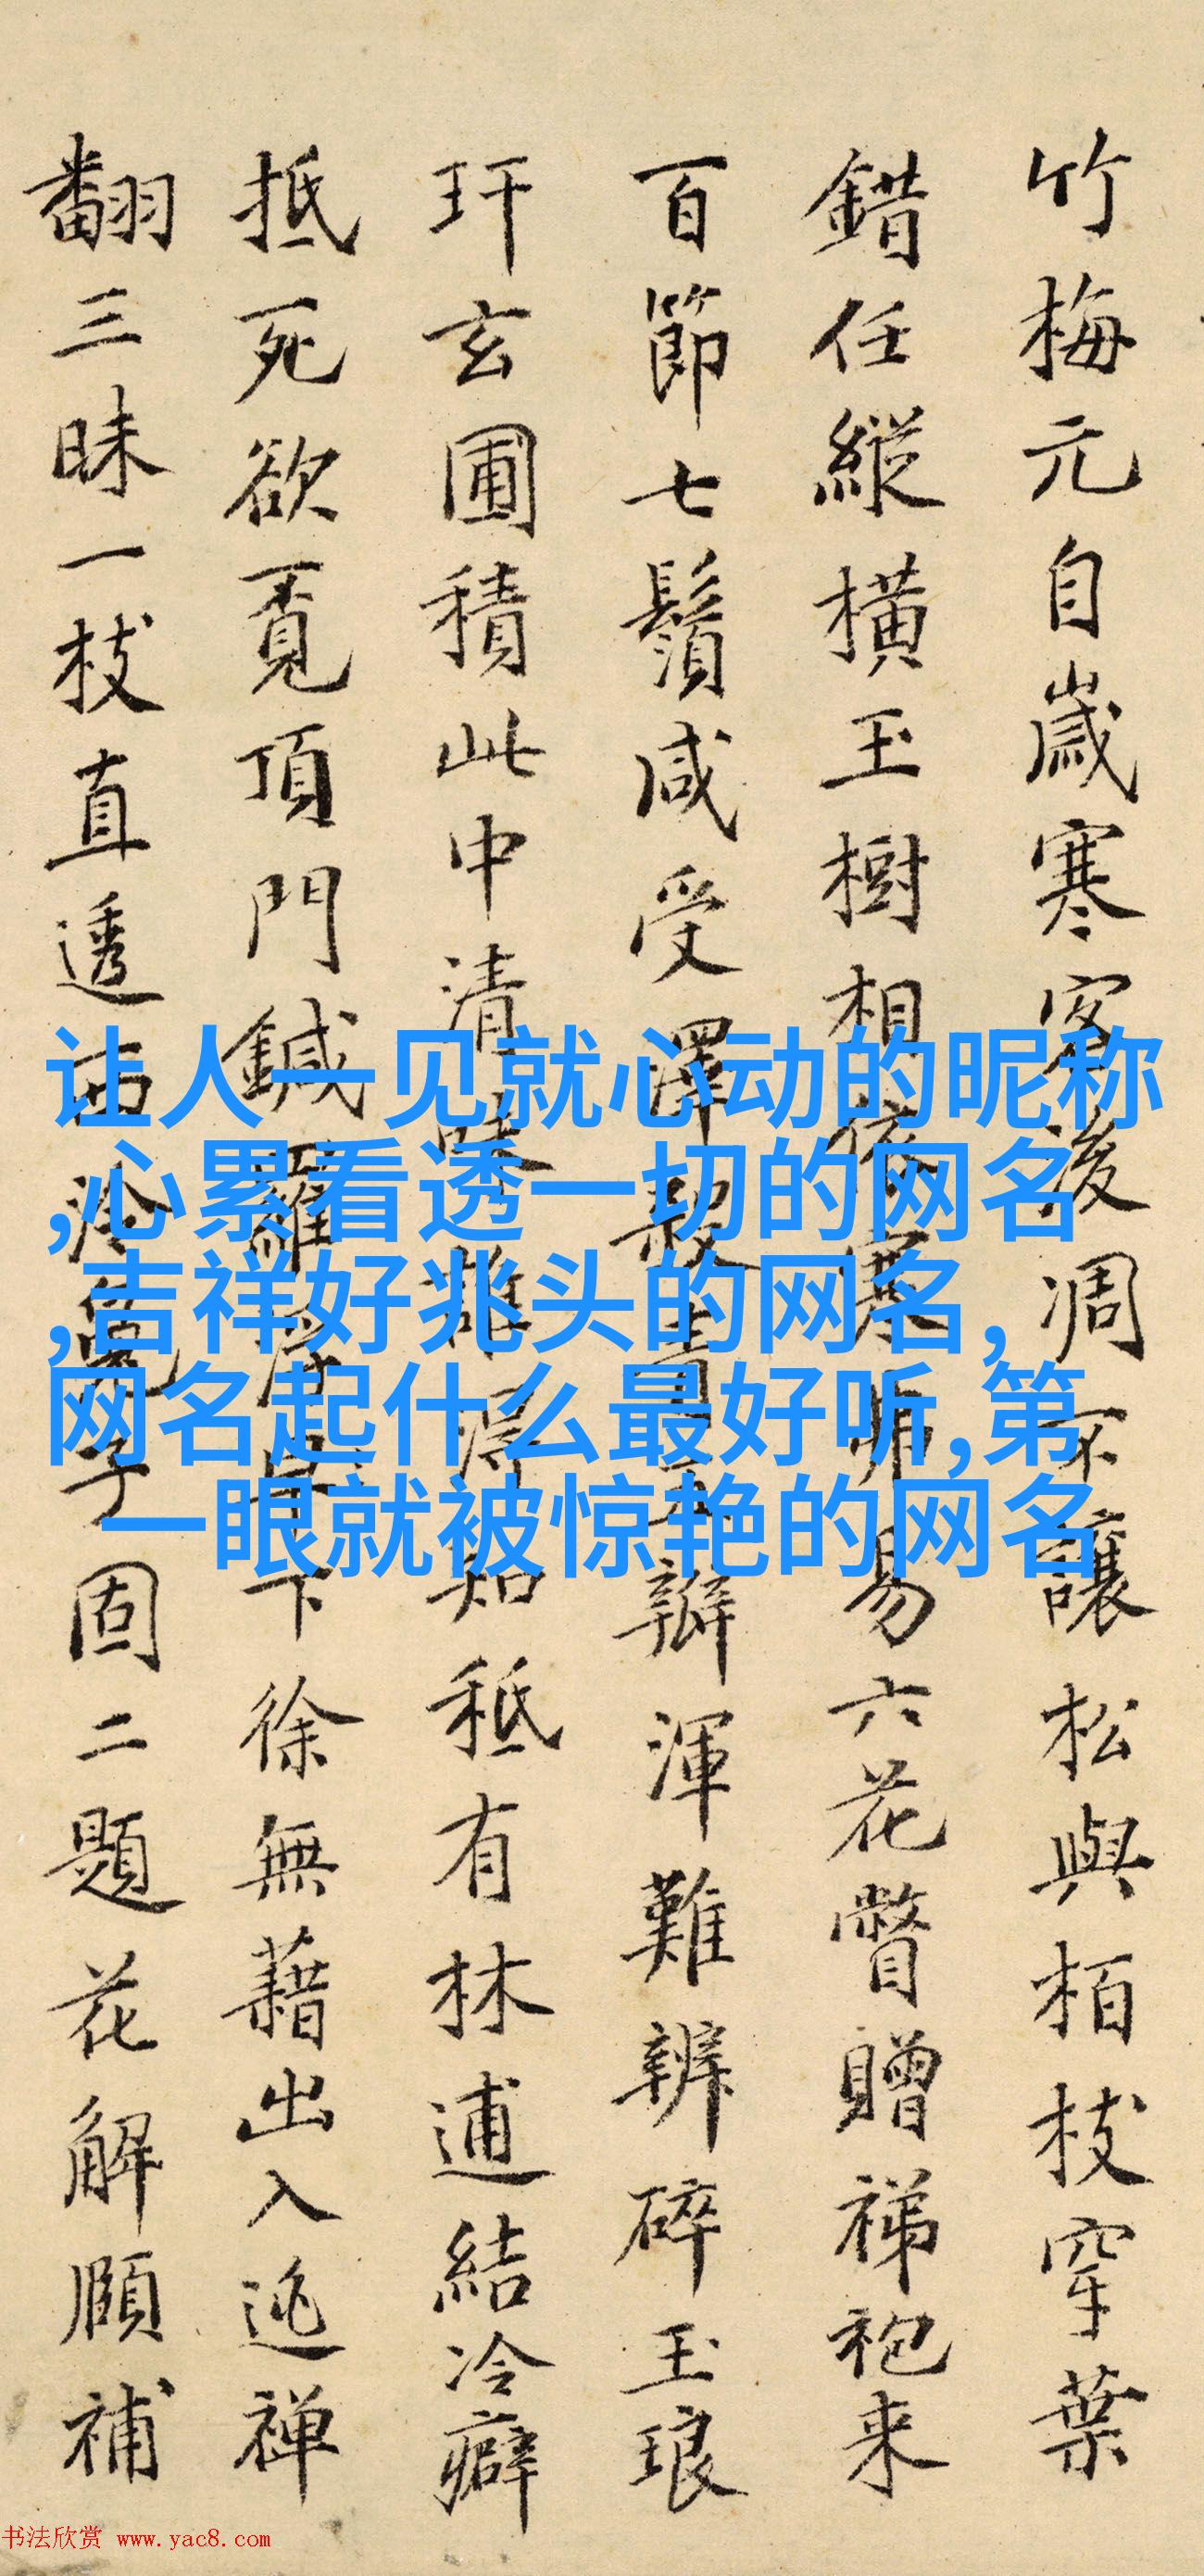 竹梅元自歲寒客後凋不讓松與栢枝穿葉
錯任縱橫玉樹相依寒
易六花瞥贈祶袍来
百節七鬚咸受澤
辦渾難辨碎玉琅
玕玄圃積此中清
知秪有林逋結冷癖
抵死欲覔頂門鍼羅
下徐無藉出入逃禅
翻三昧一枝直透西泠
子固二題花解頤補
让人一见就心动的昵称
,心累看透一切的网名
,吉祥好兆头的网名,
网名起什么最好听,第
一眼就被惊艳的网名
书法欣赏 www.yac8.com